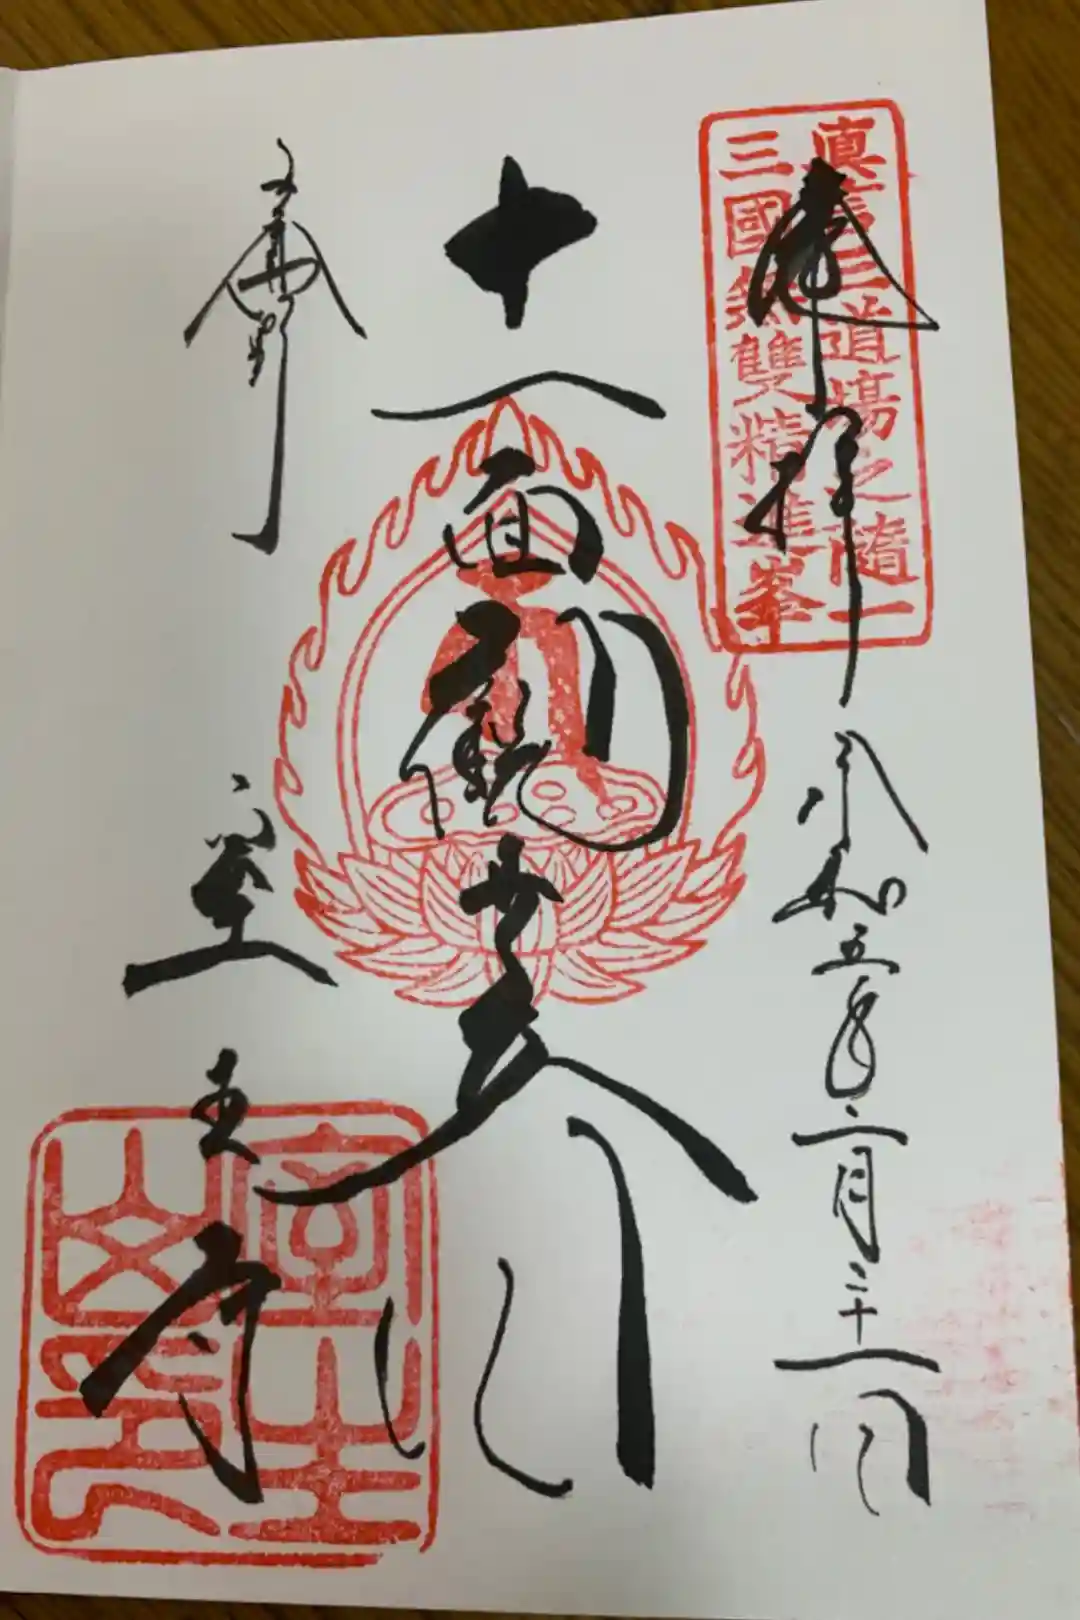 眞言三道場之隨一
三國無雙精進峯
奉拝 令和五年二月二十一日
十一面観世音
女人高野 室生寺
室生
山印